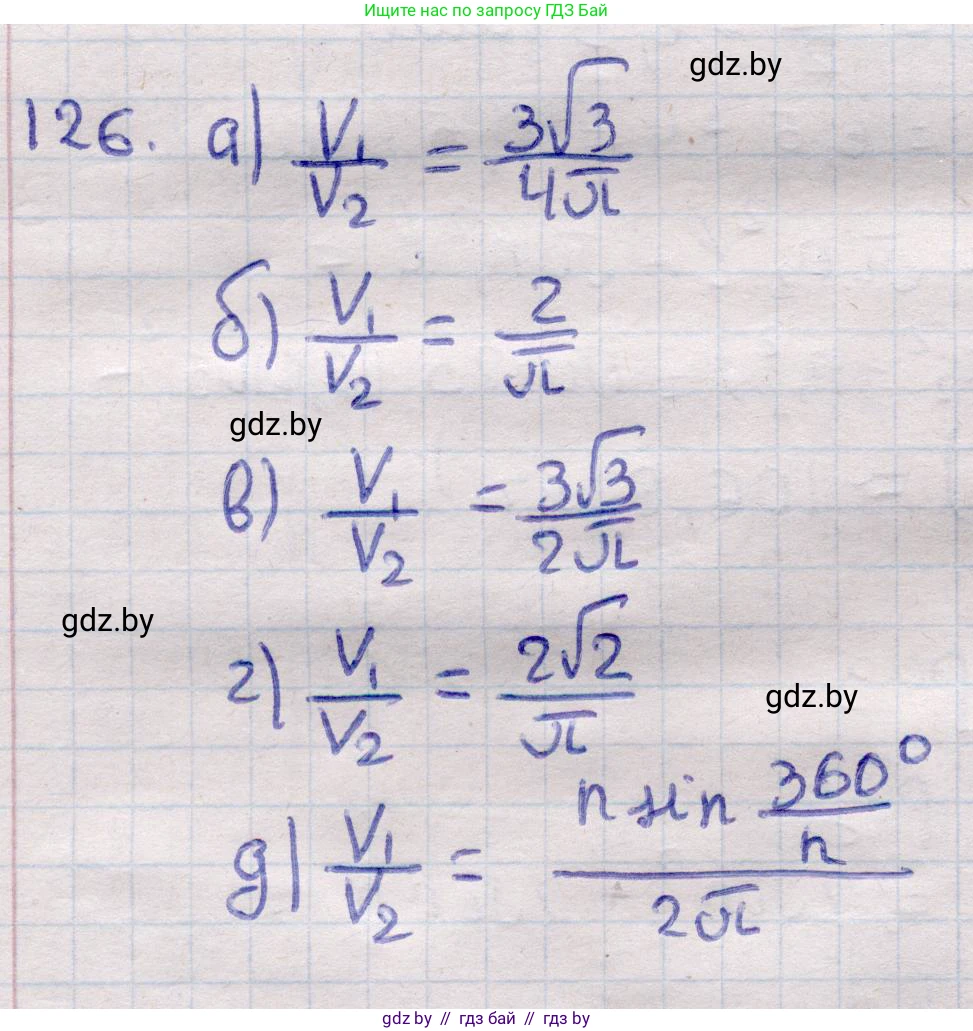 Ищите нас по запросу ГДЗ Бай
gdz.by
126. а) V₁/V₂ = 3√3/4π
б) V₁/V₂ = 2/π
gdz.by
в) V₁/V₂ = 3√3/2π
gdz.by
г) V₁/V₂ = 2√2/π
gdz.by
д) V₁/V₂ = n sin 360°/n / 2π
gdz.by // гдз бай // gdz by